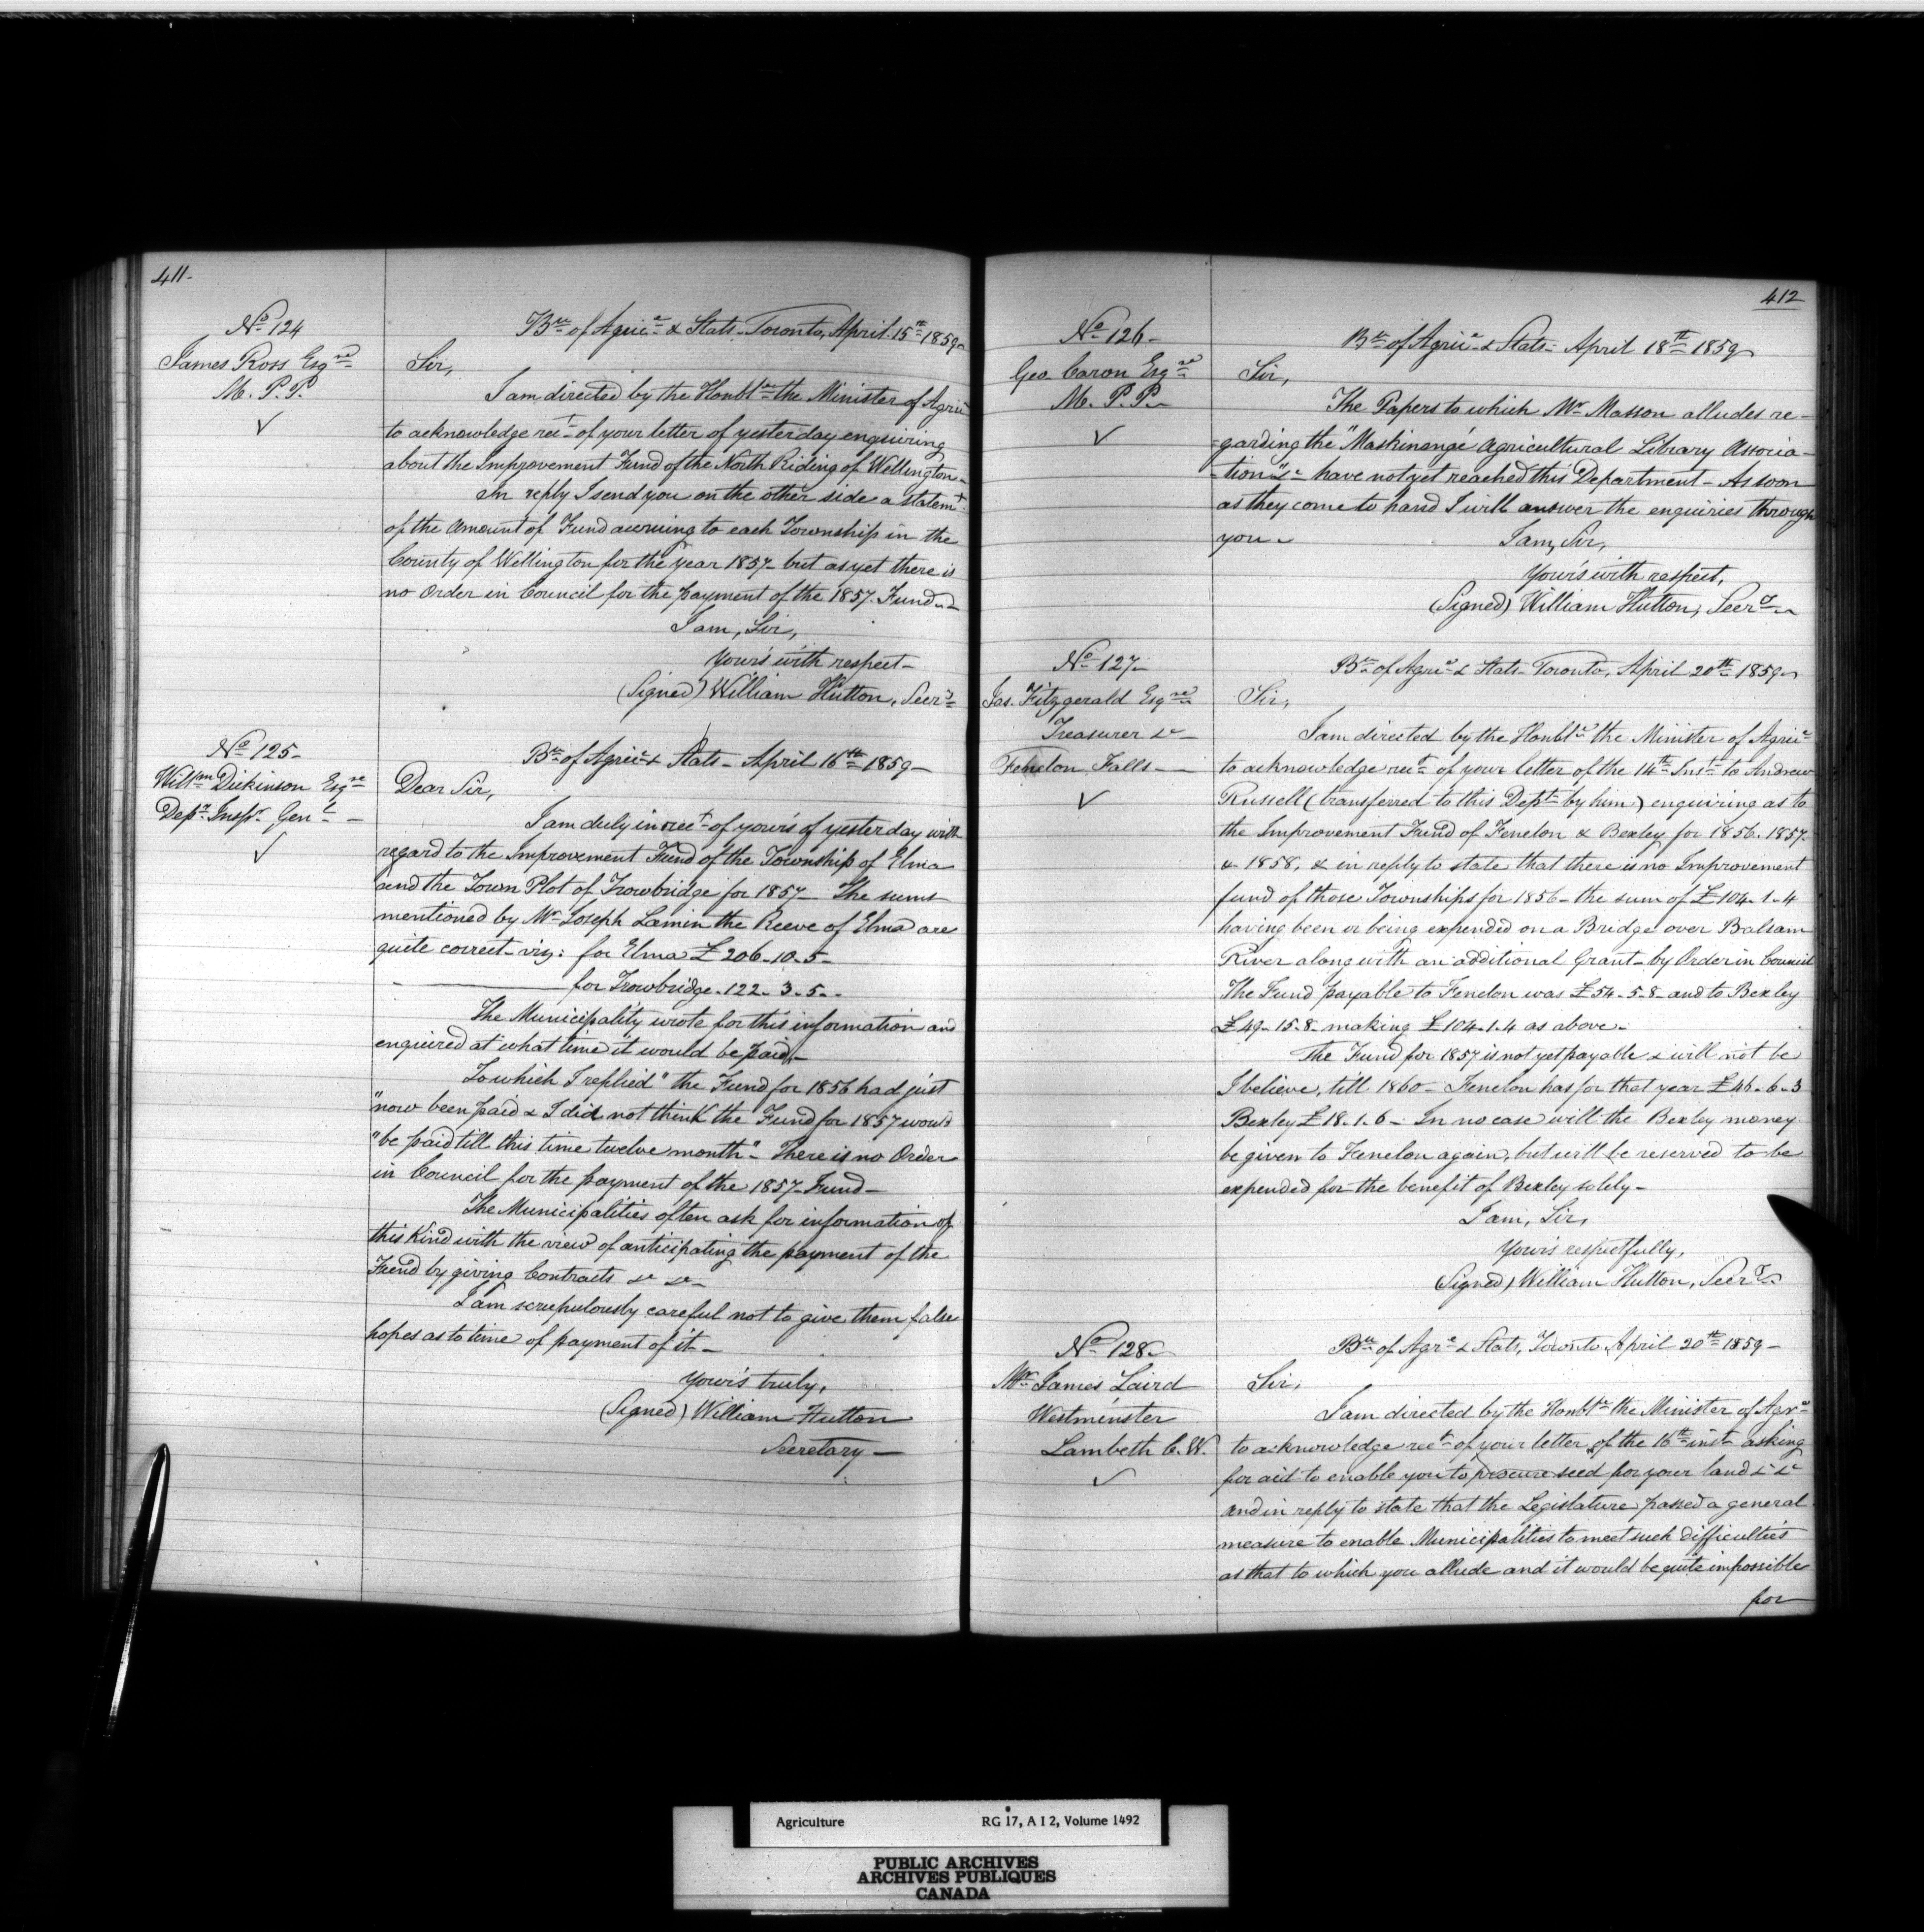 411-
No 124
James Ross Esqre
M. P. P.
✓
Bu of Agrice & Stats. Toronto, April 15th 1859-
Sir,
I am directed by the Honble the Minister of Agrice
to acknowledge rect of your letter of yesterday enquiring
about the Improvement Fund of the North Riding of Wellington-
In reply I send you on the other side a statemt
of the amount of Fund accruing to each Township in the
County of Wellington for the year 1857- but as yet there is
no Order in Council for the payment of the 1857. Fund-
I am, Sir,
Your's with respect-
(Signed) William Hutton, Secry
No 125-
Willm Dickinson Esqre
Depy Inspr Genl -
✓
Bu of Agrice & Stats- April 16th 1859-
Dear Sir,
I am duly in rect of your's of yesterday with
regard to the Improvement Fund of the Township of Elma
and the Town Plot of Trowbridge for 1857- The sums
mentioned by Mr Joseph Lamin the Reeve of Elma are
quite correct- viz: for Elma £ 206-10-5-
for Trowbridge. 122-3-5-
The Municipality wrote for this information and
enquired at what time it would be paid,-
To which I replied "the Fund for 1856 had just
"now been paid & I did not think the Fund for 1857 would
"be paid till this time twelve month"- There is no Order
in Council for the payment of the 1857- Fund-
The Municipalities often ask for information of
this kind with the view of anticipating the payment of the
Fund by giving Contracts &c &c-
I am scrupulously careful not to give them false
hopes as to time of payment of it-
Your's truly,
(Signed) William Hutton
Secretary-
412
No 126-
Geo. Caron Esqre
M. P. P.-
✓
Bu of Agrice & Stats- April 18th 1859
Sir,
The Papers to which Mr Masson alludes re-
-garding the "Maskinongé Agricultural Library Associa-
-tion" &c have not yet reached this Department- As soon
as they come to hand I will answer the enquiries through
you-
I am, Sir,
Your's with respect,
(Signed) William Hutton, Secry-
No 127-
Jas. Fitzgerald Esqre
Treasurer &c-
Fenelon Falls-
✓
Bu of Agrice & Stats- Toronto, April 20th 1859-
Sir,
I am directed by the Honble the Minister of Agrice
to acknowledge rect of your letter of the 14th Inst to Andrew
Russell (transferred to this Dept by him) enquiring as to
the Improvement Fund of Fenelon & Bexley for 1856. 1857-
& 1858, & in reply to state that there is no Improvement
fund of those Townships for 1856- the sum of £104-1-4
having been or being expended on a Bridge over Balsam
River along with an additional Grant- by Order in Council
The Fund payable to Fenelon was £54-5-8- and to Bexley
£49-15-8- making £104-1-4 as above-
The Fund for 1857 is not yet payable & will not be
I believe, till 1860- Fenelon has for that year £46-6-3
Bexley £18-1-6- In no case will the Bexley money
be given to Fenelon again, but will be reserved to be
expended for the benefit of Bexley solely-
I am, Sir,
Your's respectfully,
(Signed) William Hutton, Secry
No 128-
Mr James Laird
Westminster
Lambeth C. W.
✓
Bu of Agre & Stats, Toronto April 20th 1859-
Sir,
I am directed by the Honble the Minister of Agre
to acknowledge rect of your letter of the 16th inst asking
for aid to enable you to procure seed for your land &c &c
and in reply to state that the Legislature passed a general
measure to enable Municipalities to meet such difficulties
as that to which you allude and it would be quite impossible
for
Agriculture RG 17, A I 2, Volume 1492
PUBLIC ARCHIVES
ARCHIVES PUBLIQUES
CANADA